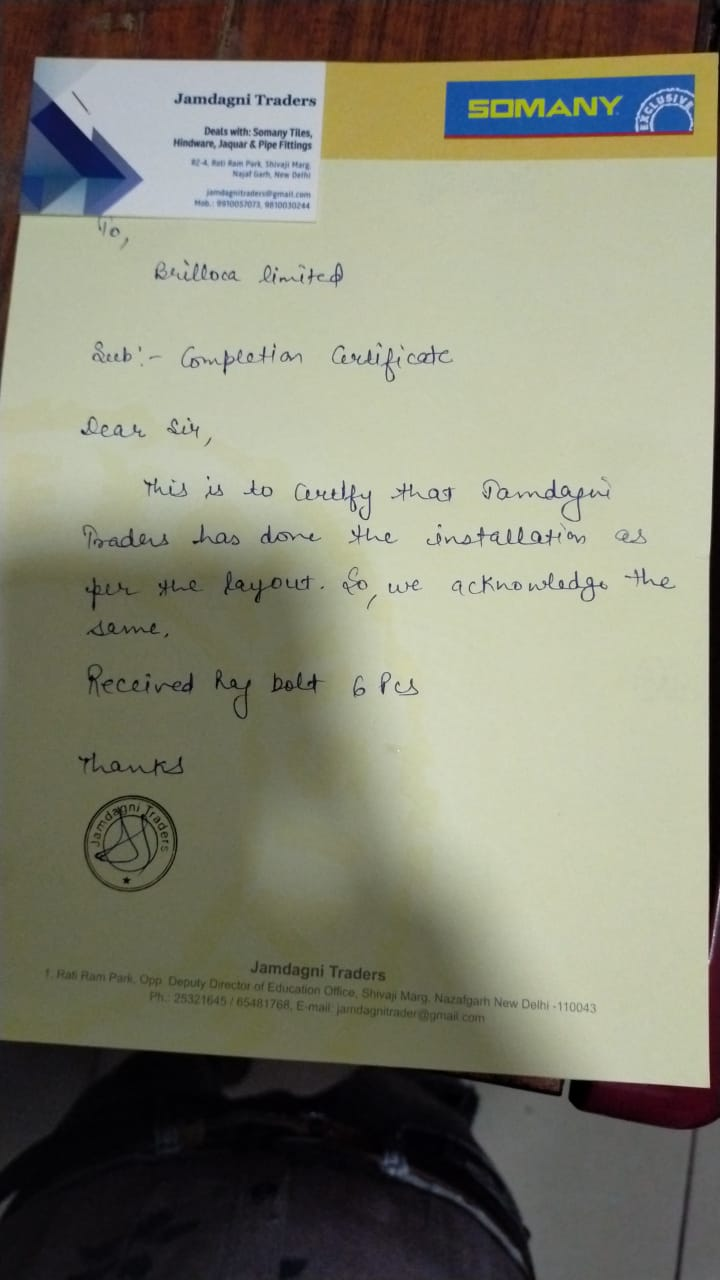 Jamdagni Traders
Deals with: Somany Tiles,
Hindware, Jaquar & Pipe Fittings
RZ-4, Rati Ram Park, Shivaji Marg,
Najaf Garh, New Delhi
jamdagnitraders@gmail.com
Mob.: 9910057073, 9810030244
SOMANY
EXCLUSIVE
To,
Brilloca limited
Sub:- Completion Certificate
Dear Sir,
This is to certify that Jamdagni
Traders has done the installation as
per the layout. So, we acknowledge the
same.
Received Rag bolt 6 Pcs
Thanks
Jamdagni Traders
Jamdagni Traders
1. Rati Ram Park, Opp. Deputy Director of Education Office, Shivaji Marg, Nazafgarh New Delhi -110043
Ph.: 25321645 / 65481768, E-mail: jamdagnitrader@gmail.com